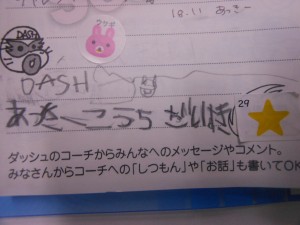 18.11 あっきー
DASH
DASH
あっきーこうち だいすき
29
ダッシュのコーチからみんなへのメッセージやコメント。
みなさんからコーチへの「しつもん」や「お話」も書いてOK